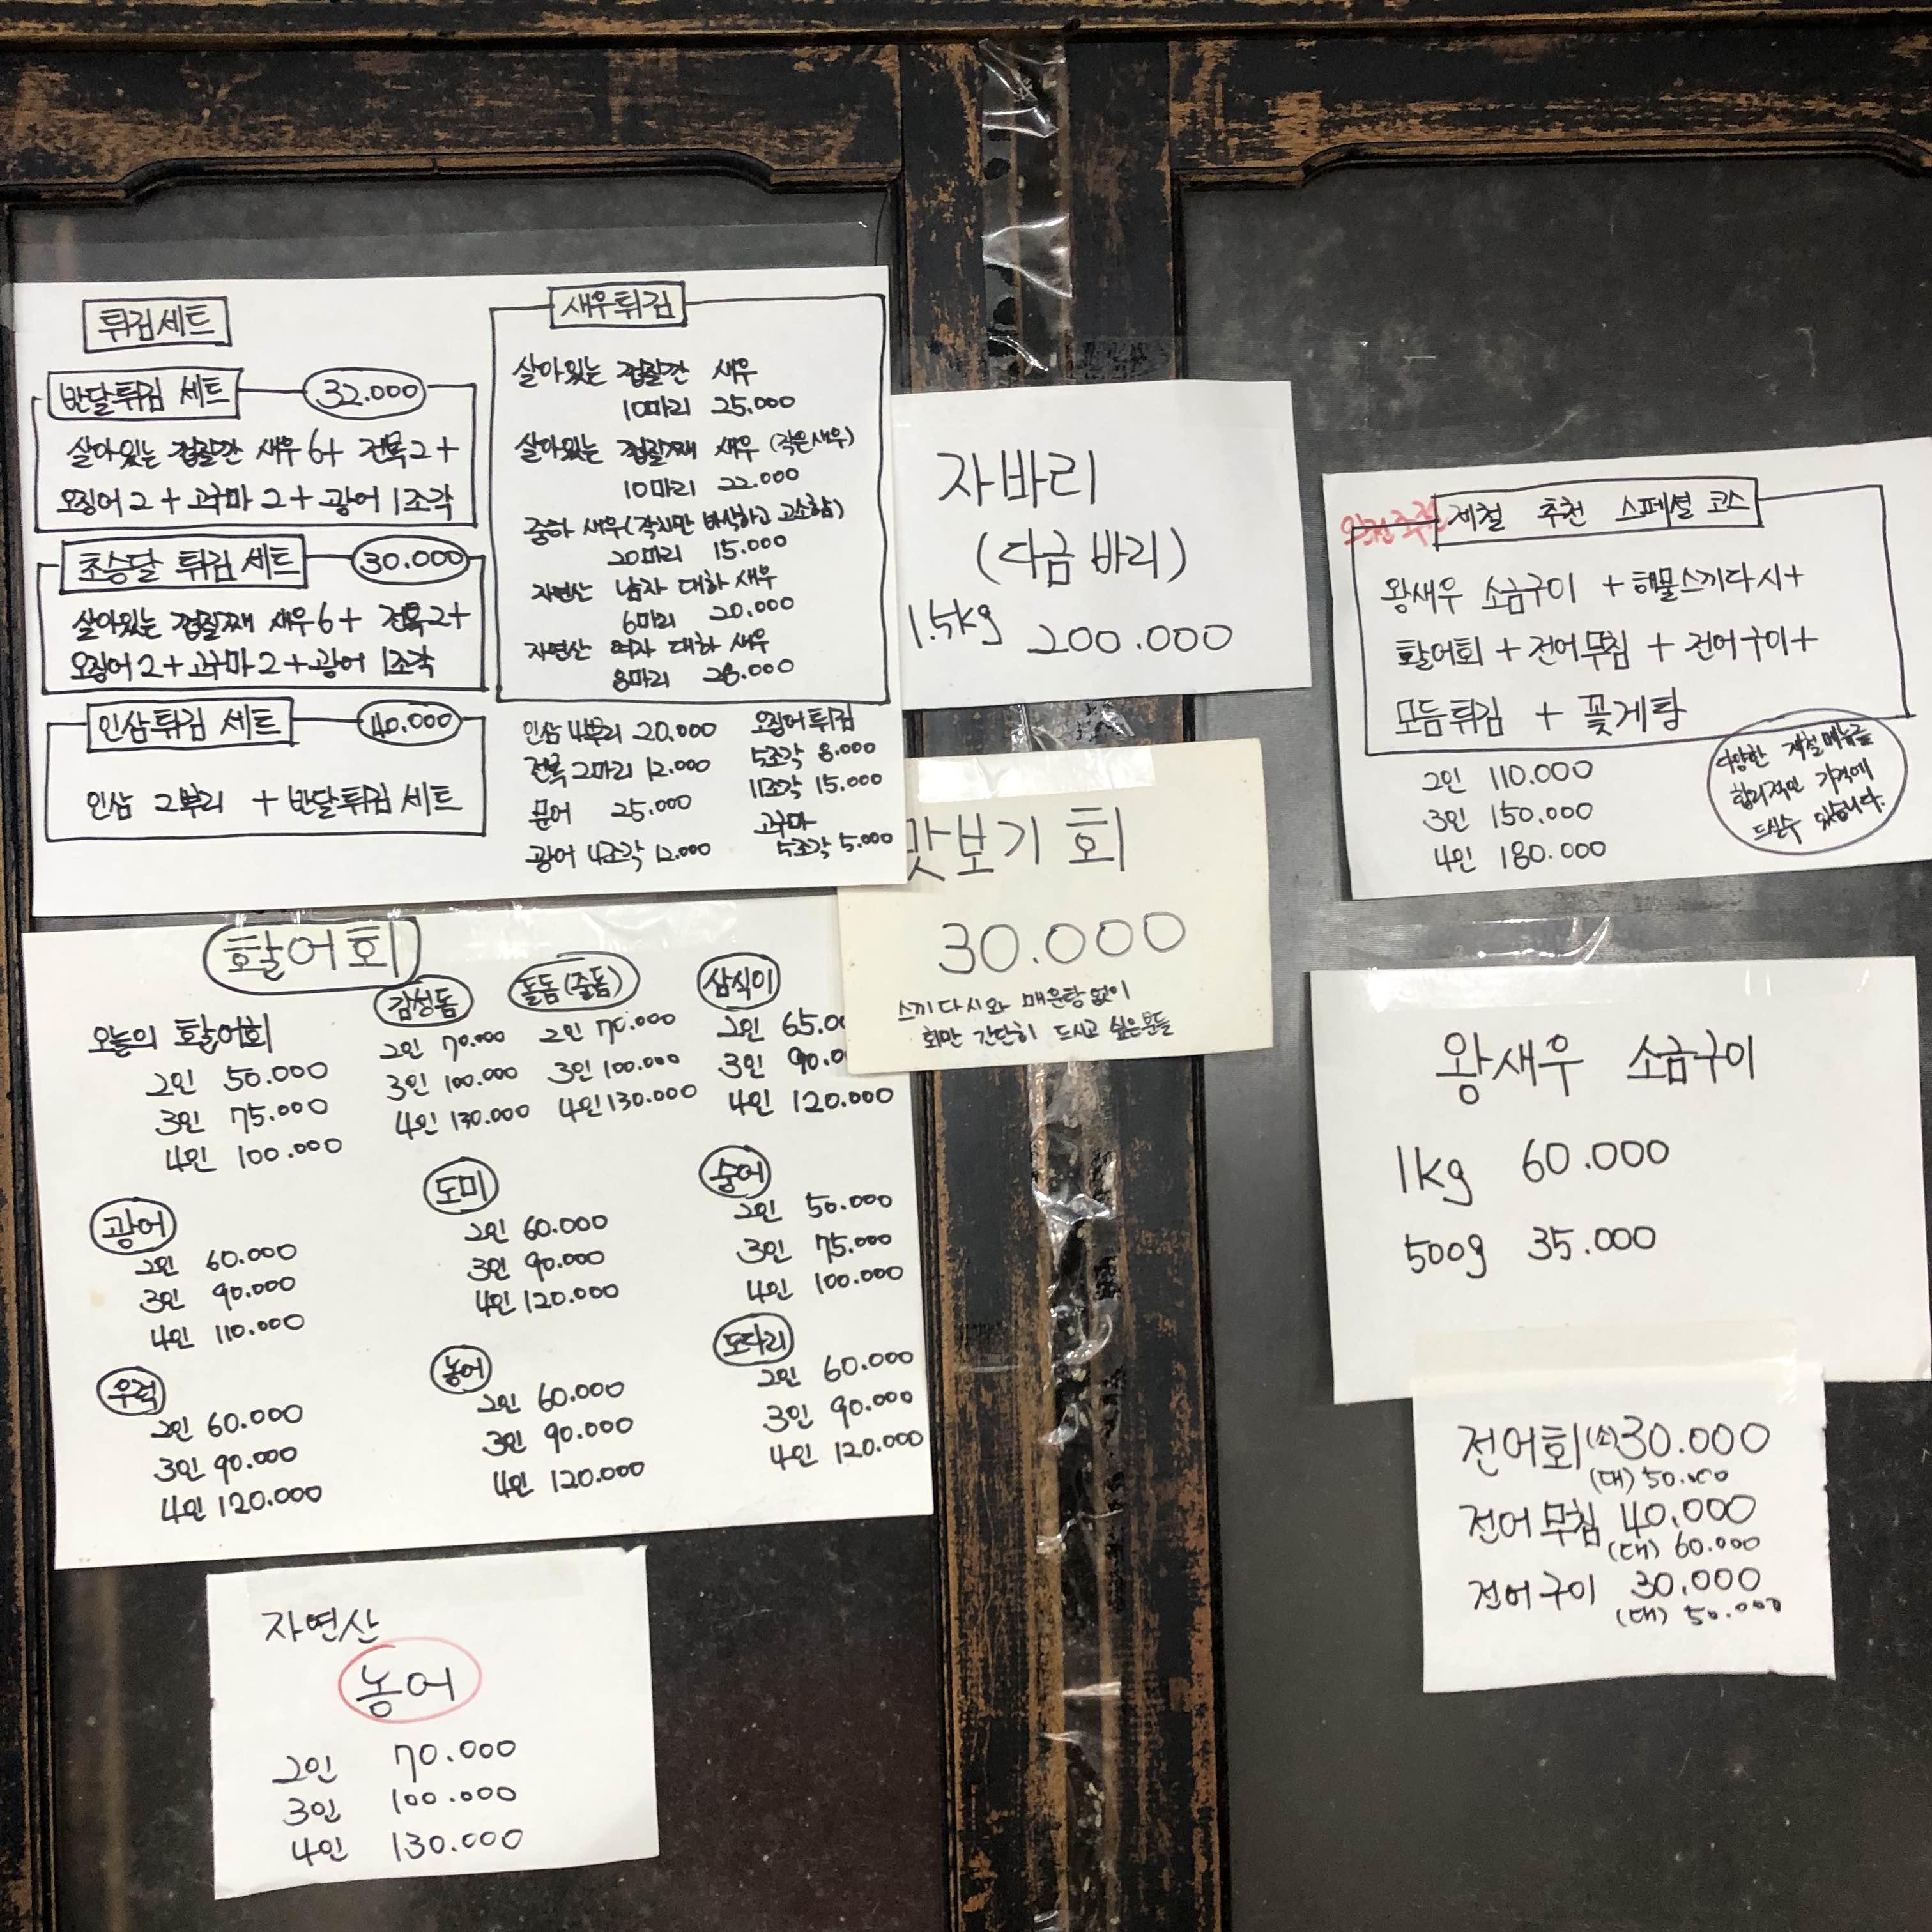 튀김세트
반달튀김 세트 32.000
살아있는 껍질깐 새우 6+ 전복2+
오징어 2 + 고구마 2 + 광어 1조각
초승달 튀김 세트 30.000
살아있는 껍질째 새우 6+ 전복2+
오징어 2 + 고구마 2 + 광어 1조각
인삼튀김 세트 40.000
인삼 2뿌리 + 반달튀김 세트
새우튀김
살아있는 껍질깐 새우
10마리 25.000
살아있는 껍질째 새우 (작은새우)
10마리 22.000
중하 새우(작지만 바삭하고 고소함)
20마리 15.000
자연산 남자 대하 새우
6마리 20.000
자연산 여자 대하 새우
8마리 28.000
인삼 4뿌리 20.000
전복 2마리 12.000
문어 25.000
광어 4조각 12.000
오징어튀김
5조각 8.000
11조각 15.000
고구마
5조각 5.000
자바리
(다금바리)
1.5kg 200.000
맛보기 회
30.000
스끼다시와 매운탕 없이
회만 간단히 드시고 싶은분들
제철 추천 스페셜 코스
왕새우 소금구이 + 해물스끼다시+
활어회 + 전어무침 + 전어구이+
모듬튀김 + 꽃게탕
2인 110.000
3인 150.000
4인 180.000
다양한 제철메뉴를
합리적인 가격에
드실수 있습니다.
활어회
오늘의 활어회
2인 50.000
3인 75.000
4인 100.000
감성돔
2인 70.000
3인 100.000
4인 130.000
돌돔(줄돔)
2인 70.000
3인 100.000
4인 130.000
삼식이
2인 65.00
3인 90.0
4인 120.000
광어
2인 60.000
3인 90.000
4인 110.000
도미
2인 60.000
3인 90.000
4인 120.000
숭어
2인 50.000
3인 75.000
4인 100.000
우럭
2인 60.000
3인 90.000
4인 120.000
농어
2인 60.000
3인 90.000
4인 120.000
도다리
2인 60.000
3인 90.000
4인 120.000
왕새우 소금구이
1kg 60.000
500g 35.000
전어회(소)30.000
(대) 50.000
전어무침 40.000
(대) 60.000
전어구이 30.000
(대) 50.000
자연산
농어
2인 70.000
3인 100.000
4인 130.000